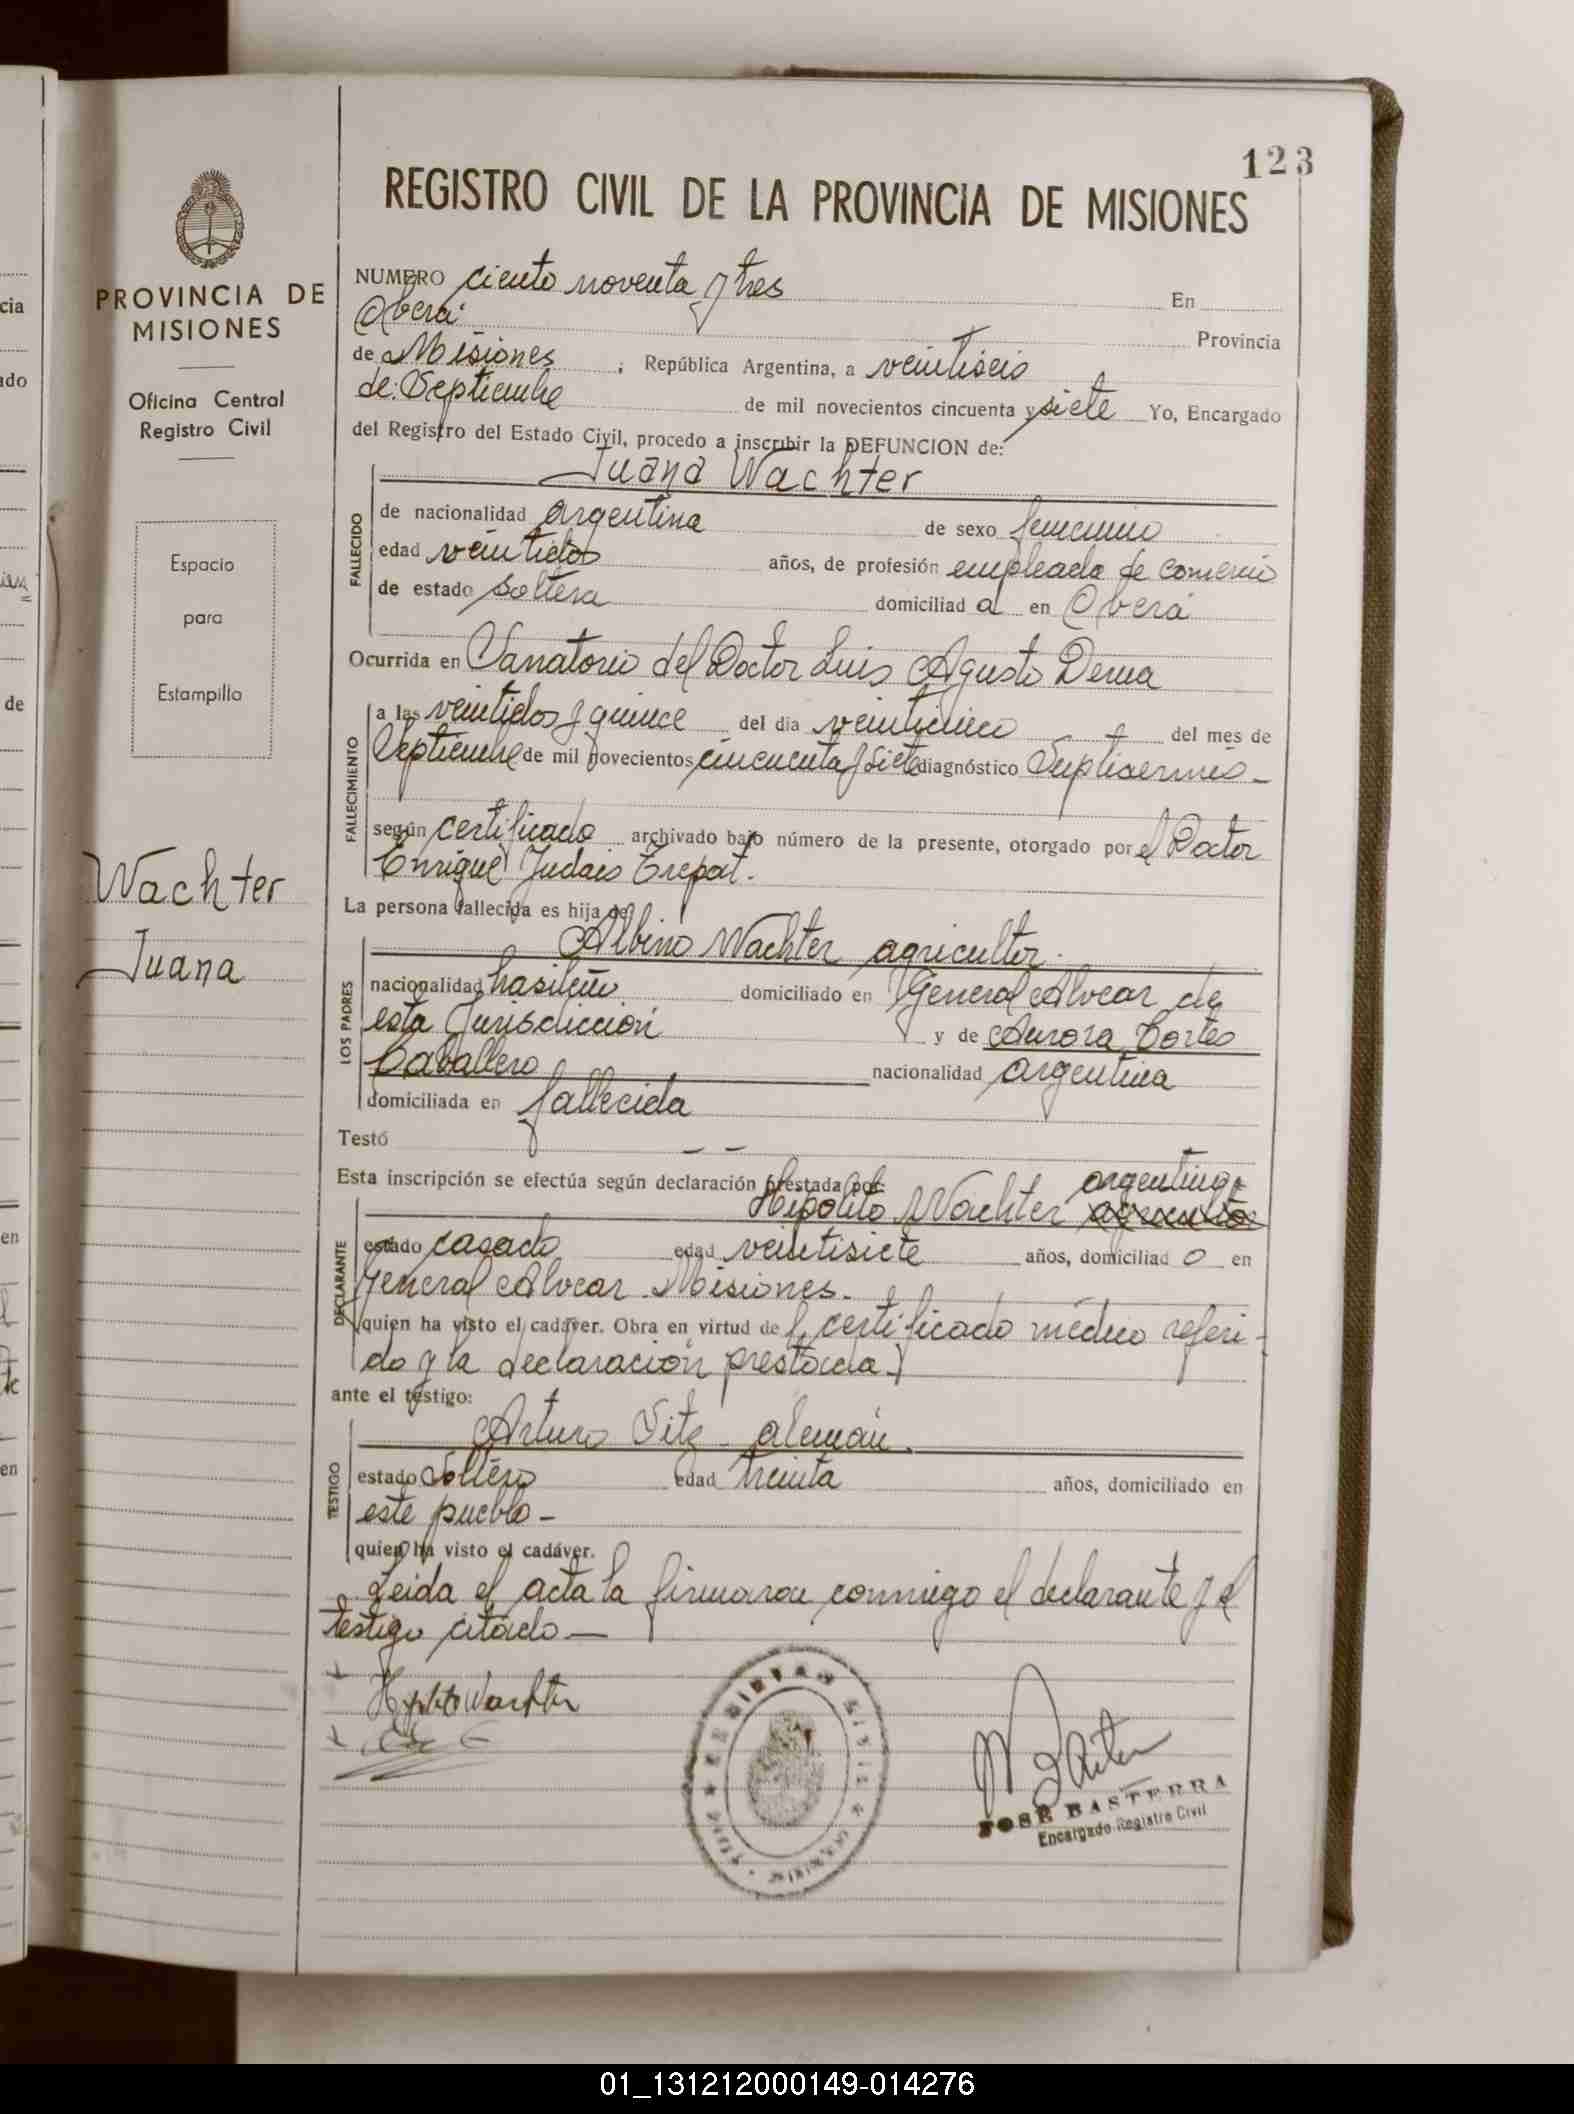 123
REGISTRO CIVIL DE LA PROVINCIA DE MISIONES
PROVINCIA DE
MISIONES
Oficina Central
Registro Civil
Espacio
para
Estampilla
Wachter
Juana
NUMERO ciento noventa y tres En
Oberá Provincia
de Misiones ; República Argentina, a veintiseis
de Septiembre de mil novecientos cincuenta y siete Yo, Encargado
del Registro del Estado Civil, procedo a inscribir la DEFUNCION de:
Juana Wachter
FALLECIDO
de nacionalidad argentina de sexo femenino
edad veintidos años, de profesión empleada de comercio
de estado soltera domiciliad a en Oberá
Ocurrida en Sanatorio del Doctor Luis Agusto Derna
FALLECIMIENTO
a las veintidos y quince del dia veinticinco del mes de
Septiembre de mil novecientos cincuenta y siete diagnóstico Septisermio -
según certificado archivado bajo número de la presente, otorgado por el Doctor
Enrique Judais Trepat.
La persona fallecida es hija de
LOS PADRES
Albino Wachter agricultor.
nacionalidad brasileño domiciliado en General Alvear de
esta Jurisdicción y de Aurora Cortes
Caballero nacionalidad argentina
domiciliada en fallecida
Testó — —
Esta inscripción se efectúa según declaración prestada por: argentino
DECLARANTE
Hipolito Wachter agricultor
estado casado edad veintisiete años, domiciliad o en
General Alvear - Misiones -
quien ha visto el cadáver. Obra en virtud del certificado médico referi-
do y la declaración prestada.)
ante el testigo:
TESTIGO
Arturo alemán.
estado Soltero edad treinta años, domiciliado en
este pueblo -
quien ha visto el cadáver.
Leida el acta la firmaron conmigo el declarante y el
testigo citado —
Hipolito Wachter
REGISTRO CIVIL
JOSÉ BASTERRA
Encargado Registro Civil
cia
ado
de
en
en
01_131212000149-014276